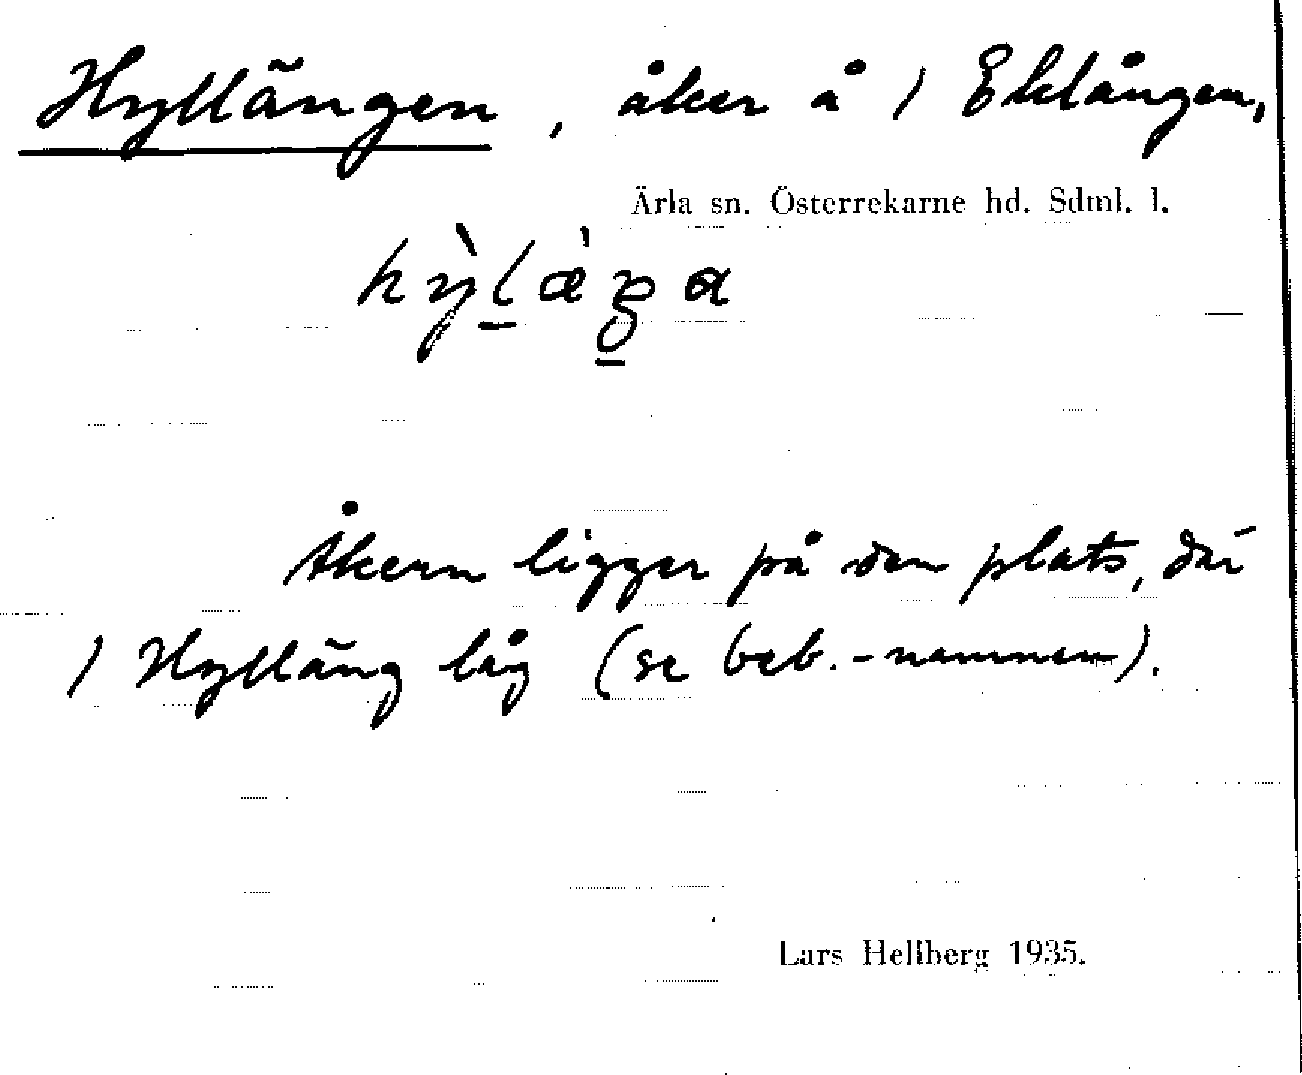 Hyllängen, åker å / Eklången,
Ärla sn. Österrekarne hd. Sdml. l.
Åkern ligger på den plats, där
/ Hylläng låg (se beb.-namnen).
Lars Hellberg 1935.